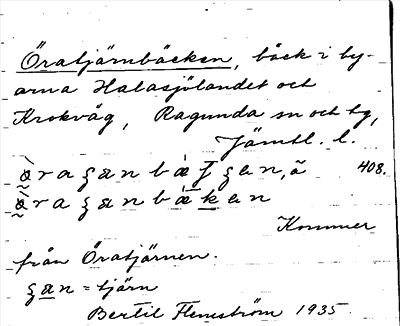 Öratjärnbäcken, bäck i by-
arna Halasjölandet och
Krokvåg, Ragunda sn och tg,
Jämtl. l.
408.
Kommer
från Öratjärnen.
gan = tjärn
Bertil Flemström 1935.